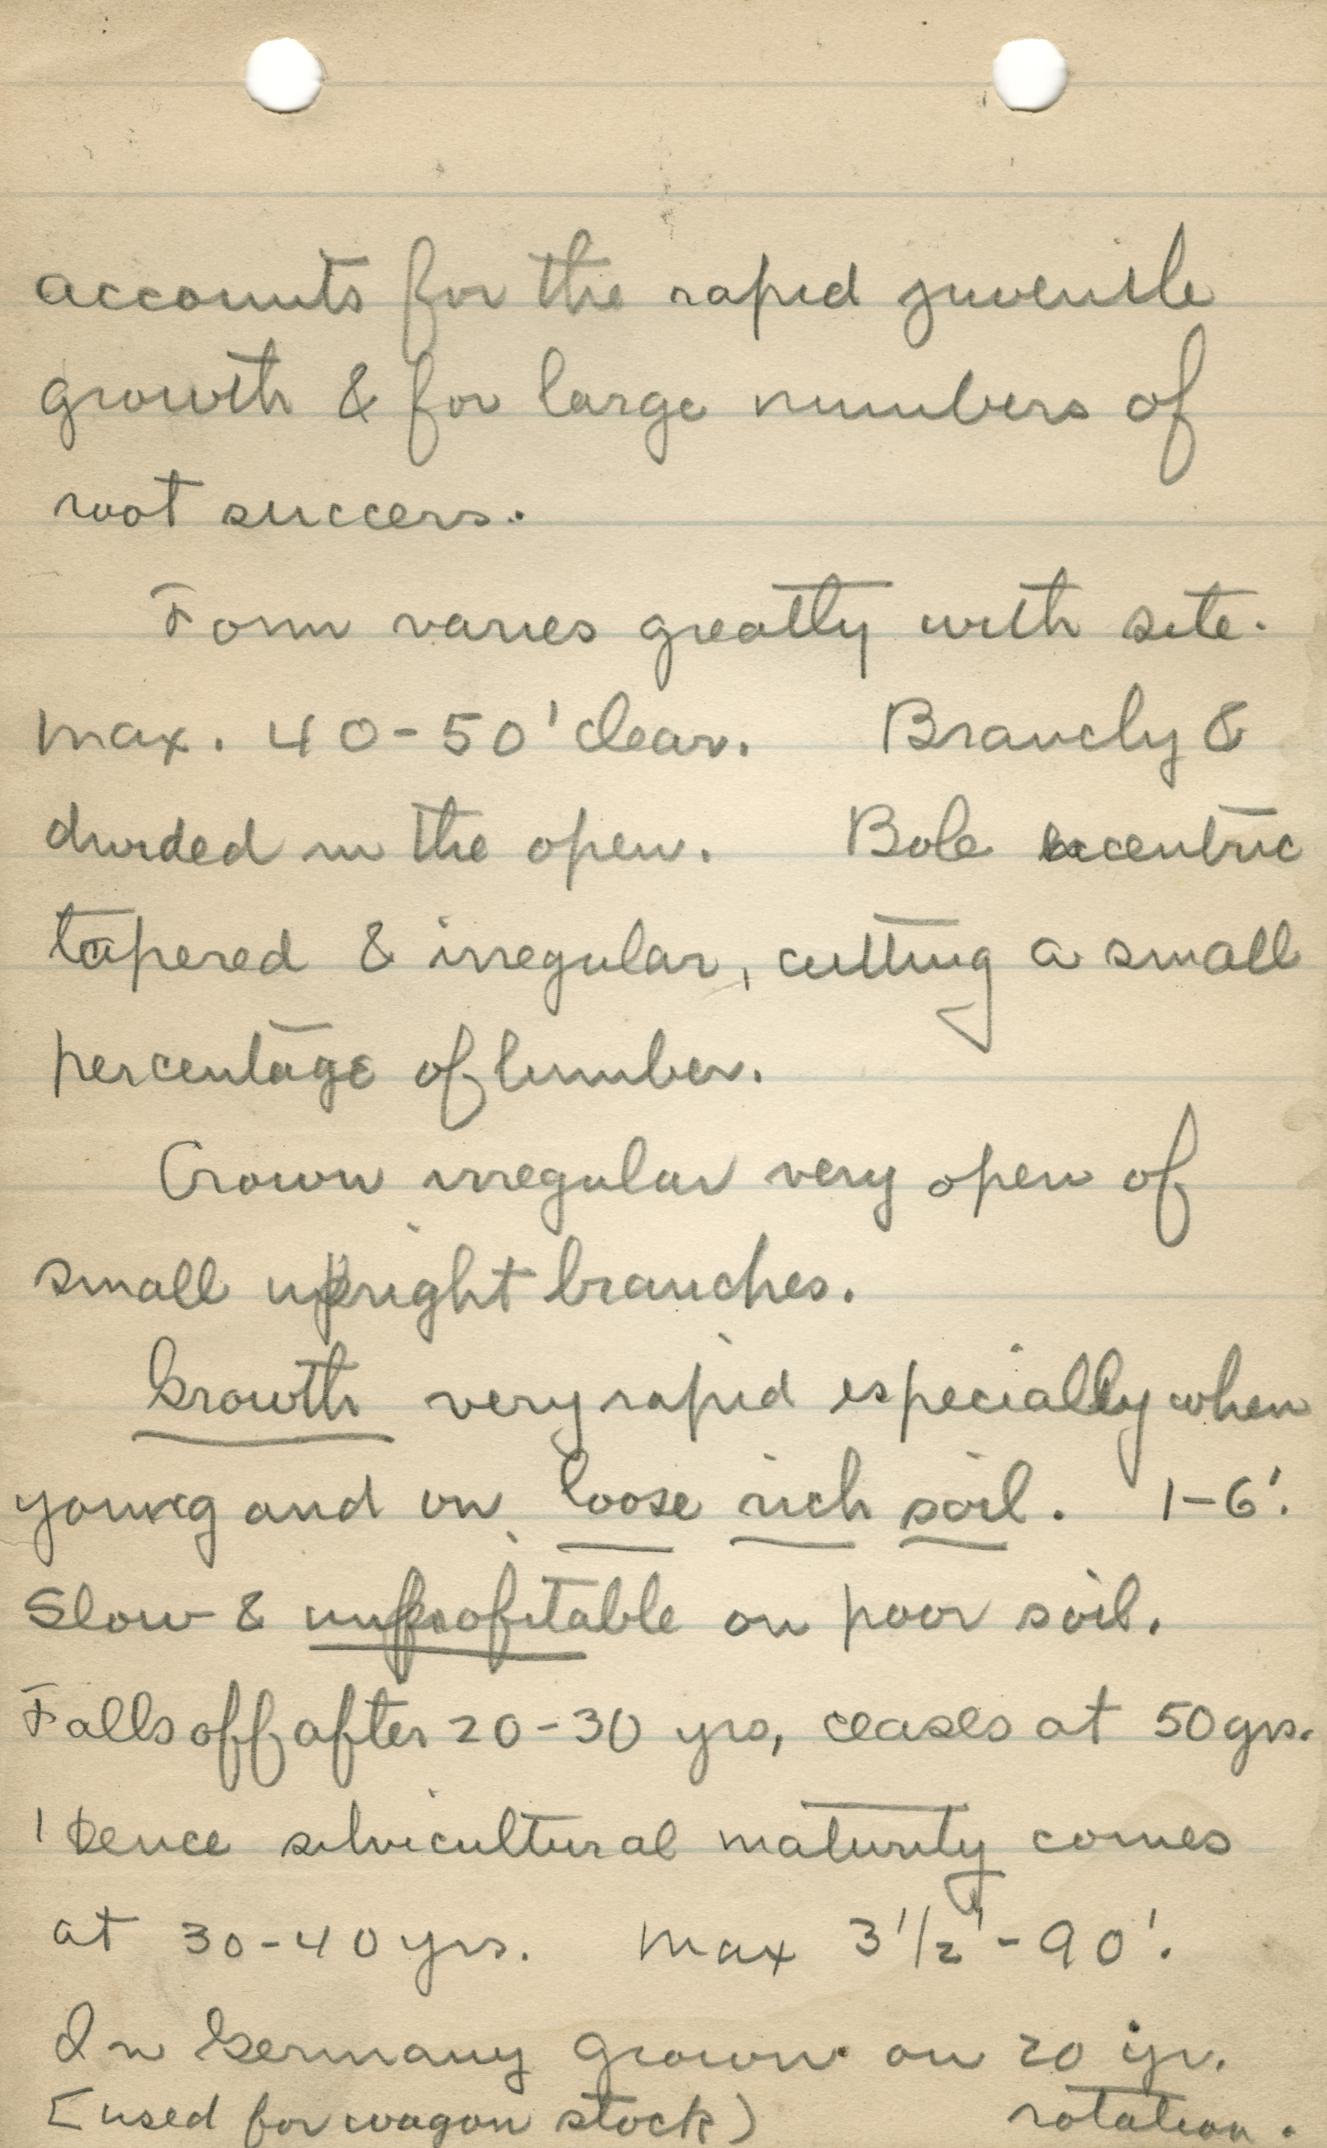 accounts for the rapid juvenile
growth & for large numbers of
root success.
Form varies greatly with site.
Max. 40-50' clear. Branchy &
divided in the open. Bole eccentric
tapered & irregular, cutting a small
percentage of lumber.
Crown irregular very open of
small upright branches.
Growth very rapid especially when
young and on loose rich soil. 1-6'.
Slow & unprofitable on poor soil.
Falls off after 20-30 yrs, ceases at 50 yrs.
Hence silvicultural maturity comes
at 30-40 yrs. Max 3 1/2' - 90'.
In Germany grown on 20 yr.
[used for wagon stock) rotation.